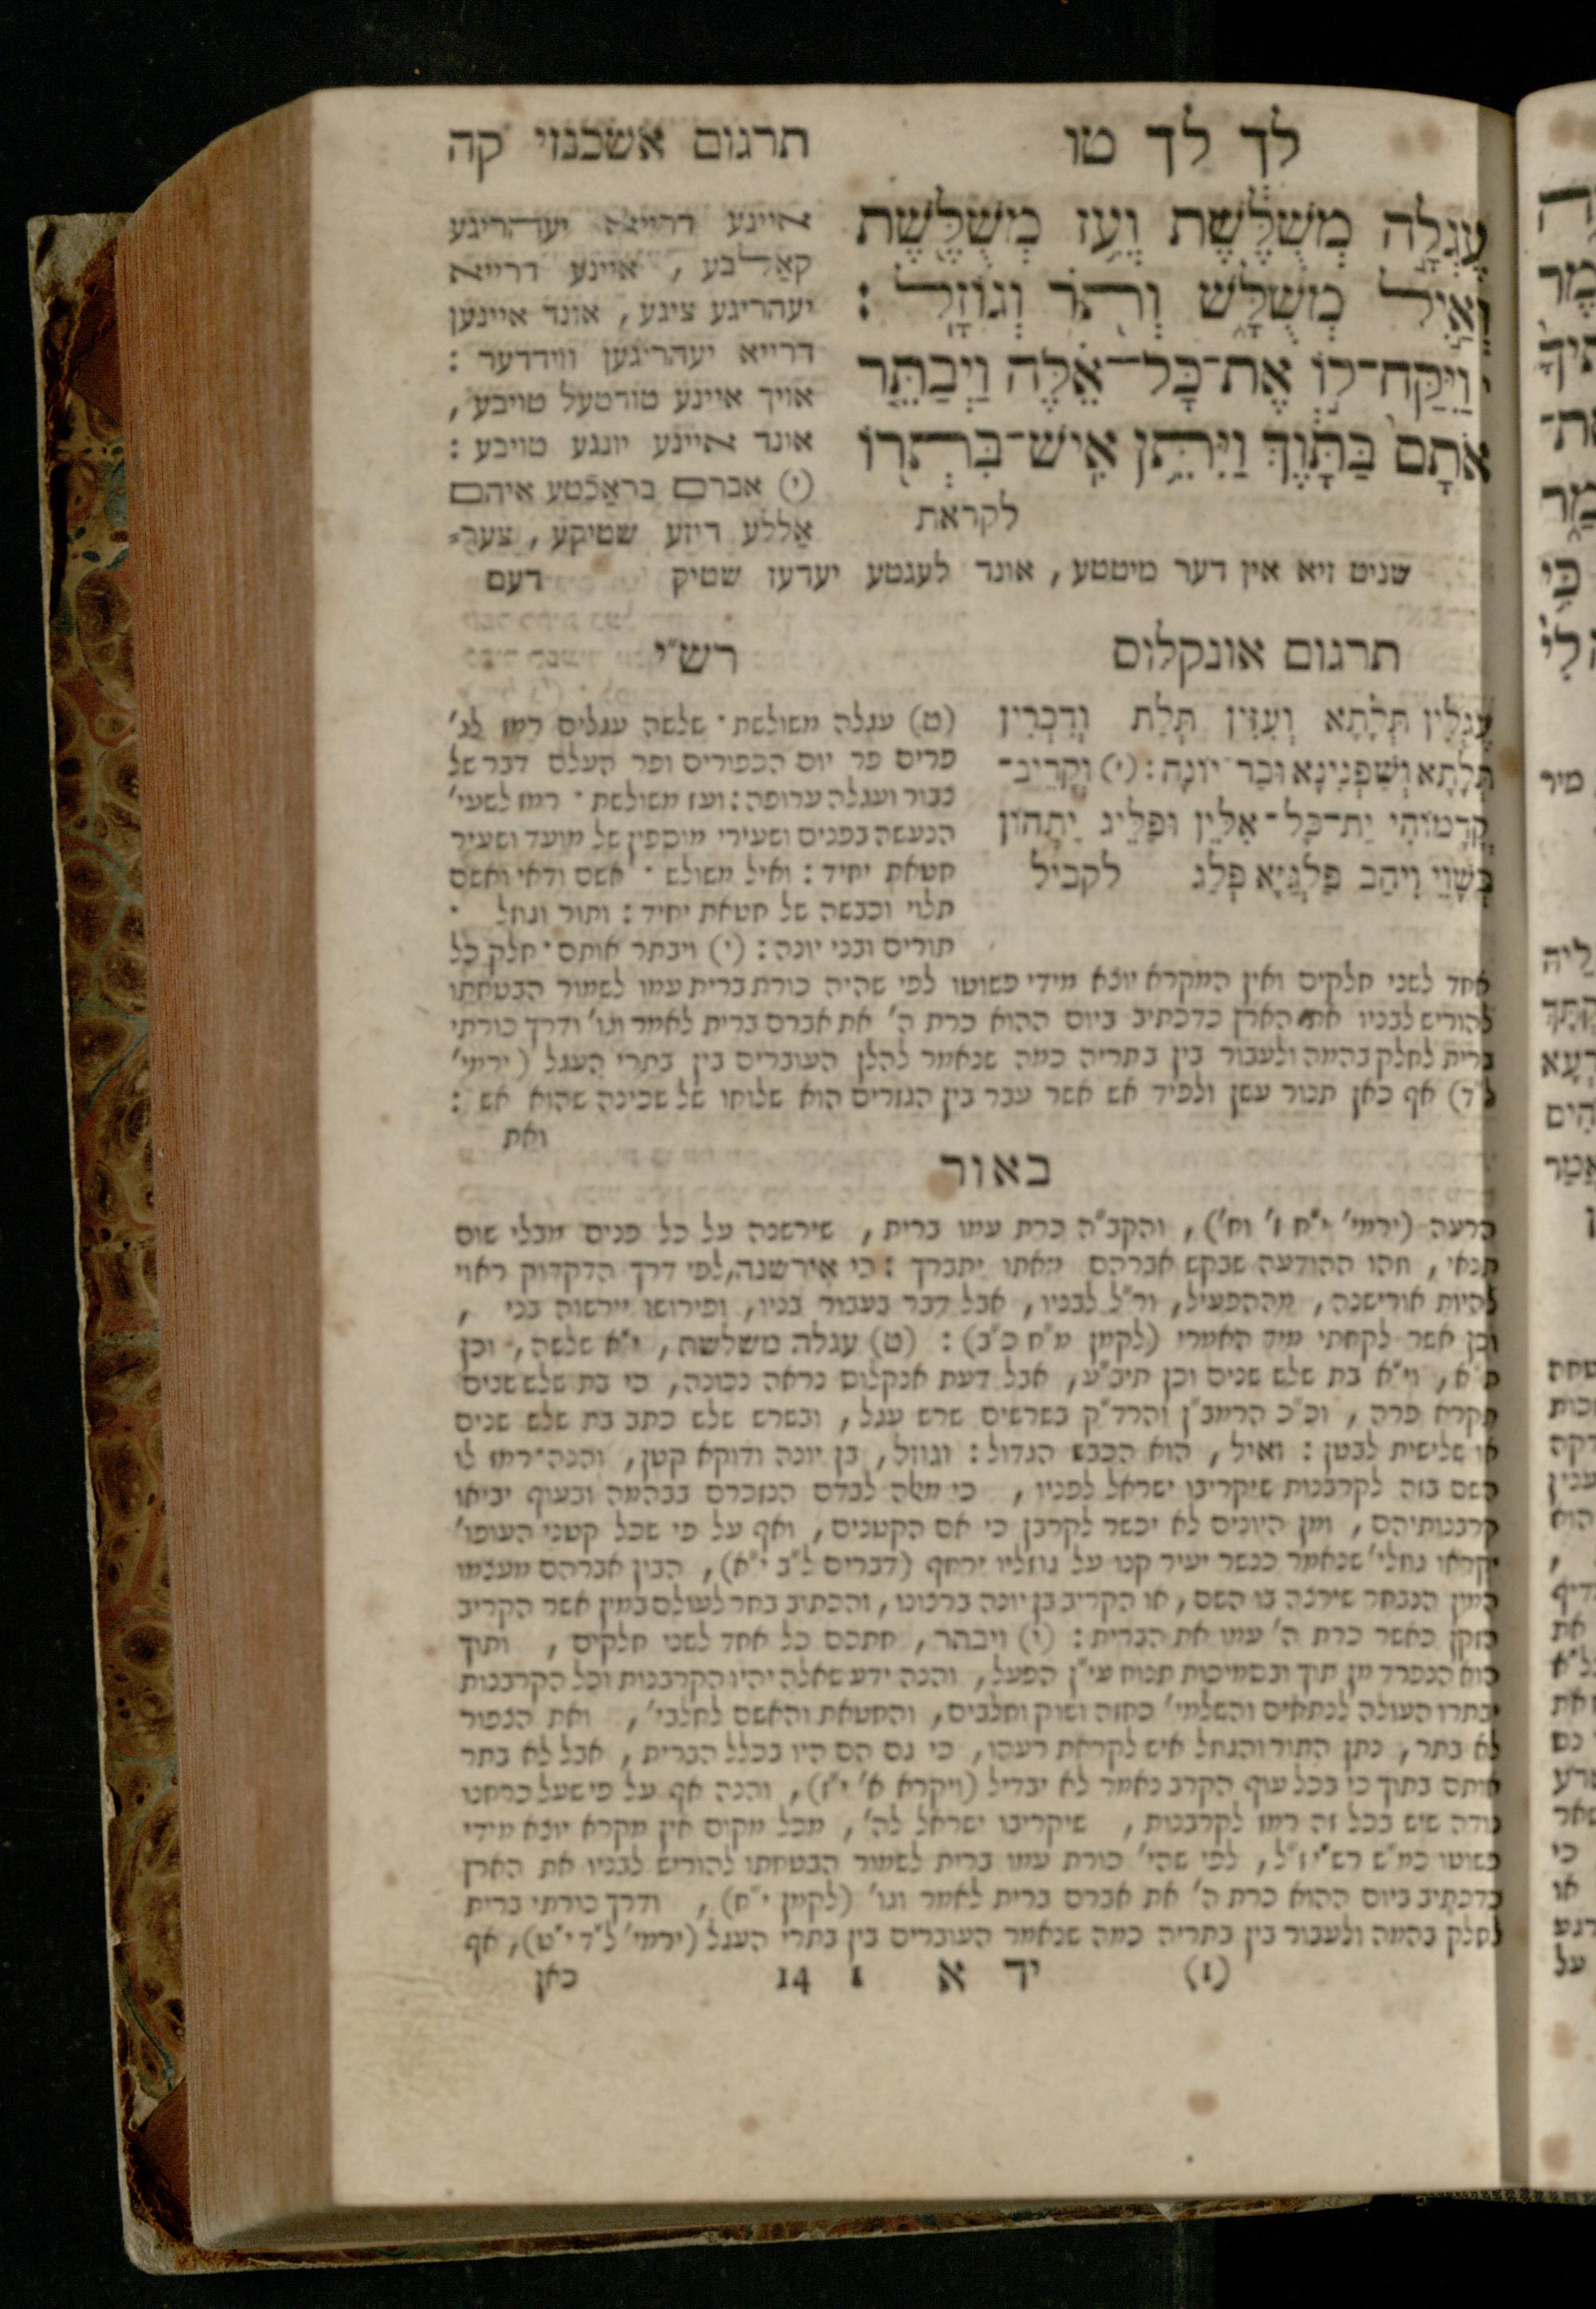 לך לך טו
תרגום אשכנזי קה
עֶגְלָה מְשֻׁלֶּשֶׁת וְעֵז מְשֻׁלֶּשֶׁת
וְאַיִל מְשֻׁלָּשׁ וְתֹר וְגוֹזָל :
וַיִּקַּח־לוֹ אֶת־כָּל־אֵלֶּה וַיְבַתֵּר
אֹתָם בַּתָּוֶךְ וַיִּתֵּן אִישׁ־בִּתְרוֹ
לקראת
איינע דרייא יעהריגע
קאַלבע , איינע דרייא
יעהריגע ציגע, אונד איינען
דרייא יעהריגען ווידדער :
אויך איינע טורטעל טויבע,
אונד איינע יונגע טויבע :
(י) אברם בראַכֿטע איהם
אַללע דיזע שטיקע, צער־
שניט זיא אין דער מיטטע, אונד לעגטע יעדעז שטיק דעם
תרגום אונקלוס
עֶגְלִין תְּלָתָא וְעִזִּין תְּלַת וְדִכְרִין
תְּלָתָא וְשַׁפְנִינָא וּבַר יוֹנָה: (י) וְקָרֵיב־
קֳדָמוֹהִי יַת־כָּל־אִלֵּין וּפַלֵּיג יַתְהוֹן
בְּשָׁוֵי וִיהַב פַּלְגַיָּא פְּלַג לקביל
רש״י
(ט) עגלה משולשת · שלשה עגלים רמז לג׳
פרים פר יום הכפורים ופר העלם דבר של
צבור ועגלה ערופה: ועז משולשת · רמז לשעי׳
הנעשה בפנים ושעירי מוספין של מועד ושעיר
חטאת יחיד : ואיל משולש · אשם ודאי ואשם
תלוי וכבשה של חטאת יחיד : ותור וגוזל ·
תורים ובני יונה: (י) ויבתר אותם · חלק כל
אחד לשני חלקים ואין המקרא יוצא מידי פשוטו לפי שהיה כורת ברית עמו לשמור הבטחתו
להוריש לבניו את הארץ כדכתיב ביום ההוא כרת ה׳ את אברם ברית לאמר וגו׳ ודרך כורתי
ברית לחלק בהמה ולעבור בין בתריה כמה שנאמר להלן העוברים בין בתרי העגל (ירמי׳
ל״ד) אף כאן תנור עשן ולפיד אש אשר עבר בין הגזרים הוא שלוחו של שכינה שהוא אש :
ואת
באור
הרעה (ירמי׳ י״ח ז׳ וח׳), והקב״ה כרת עמו ברית, שירשנה על כל פנים מבלי שום
תנאי, וזהו ההודעה שבקש אברהם מאתו יתברך : כי אירשנה, לפי דרך הדקדוק ראוי
להיות אורישנה, מההפעיל, ור״ל לבניו, אבל דבר בעבור בניו, ופירושו יירשוה בני ,
וכן אשר לקחתי מיד האמרי (לקמן מ״ח כ״ב) : (ט) עגלה משלשת, י״א שלשה, וכן
ת״א, וי״א בת שלש שנים וכן תיב״ע, אבל דעת אנקלוס נראה נכונה, כי בת שלש שנים
תקרא פרה, וכ״כ הרמב״ן והרד״ק בשרשים שרש עגל, ובשרש שלש כתב בת שלש שנים
או שלישית לבטן : ואיל, הוא הכבש הגדול : וגוזל, בן יונה ודוקא קטן, והנה רמז לו
השם בזה לקרבנות שיקריבו ישראל לפניו, כי מאלה לבדם הנזכרם בבהמה ובעוף יביאו
קרבנותיהם, ומן היונים לא יכשר לקרבן כי אם הקטנים, ואף על פי שכל קטני העופו׳
יקראו גוזלי׳ שנאמר כנשר יעיר קנו על גוזליו ירחף (דברים ל״ב י״א), הבין אברהם מעצמו
המין הנבחר שירצה בו השם, או הקריב בן יונה ברצונו, והכתוב בחר לעולם במין אשר הקריב
הזקן כאשר כרת ה׳ עמו את הברית : (י) ויבתר, חתכם כל אחד לשני חלקים, ותוך
הוא הנפרד מן תוך ובסמיכות תנוח עי״ן הפעל, והנה ידע שאלה יהיו הקרבנות וכל הקרבנות
יבתרו העולה לנתחים והשלמי׳ כחזה ושוק וחלבים, והחטאת והאשם לחלבי׳, ואת הצפור
לא בתר, נתן התור והגוזל איש לקראת רעהו, כי גם הם היו בכלל הברית, אבל לא בתר
אותם בתוך כי בכל עוף הקרב נאמר לא יבדיל (ויקרא א׳ י״ז), והנה אף על פי שעל כרחנו
נודה שיש בכל זה רמז לקרבנות, שיקריבו ישראל לה׳, מכל מקום אין מקרא יוצא מידי
פשוטו כמ״ש רש״י ז״ל, לפי שהי׳ כורת עמו ברית לשמור הבטחתו להוריש לבניו את הארץ
כדכתיב ביום ההוא כרת ה׳ את אברם ברית לאמר וגו׳ (לקמן י״ח), ודרך כורתי ברית
לחלק בהמה ולעבור בין בתריה כמה שנאמר העוברים בין בתרי העגל (ירמי׳ ל״ד י״ט), אף
(1) יד א 1 14 כאן